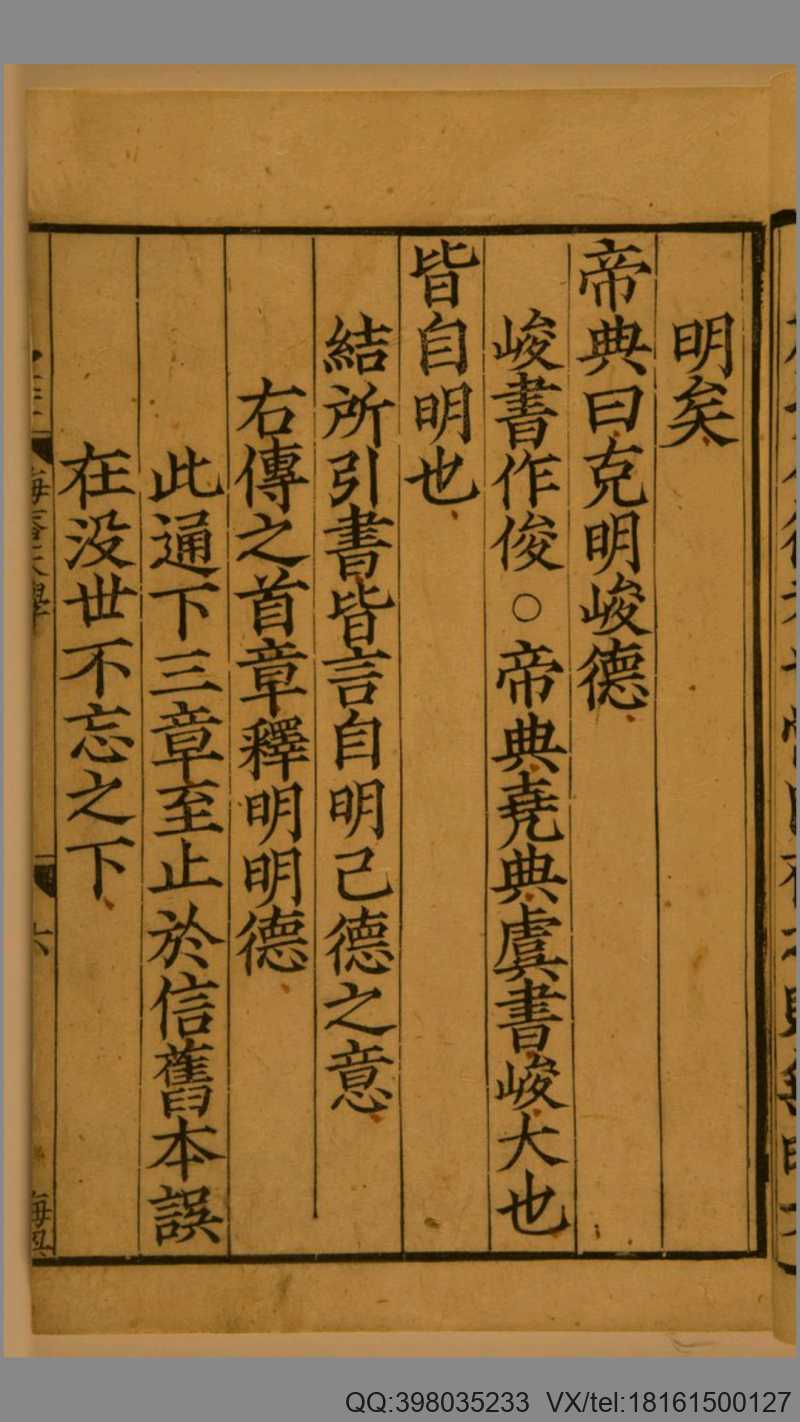 明矣
帝典曰克明峻德
峻書作俊○帝典堯典虞書峻大也
皆自明也
結所引書皆言自明己德之意
右傳之首章釋明明德
此通下三章至止於信舊本誤
在没世不忘之下
六
QQ:398035233 VX/tel:18161500127